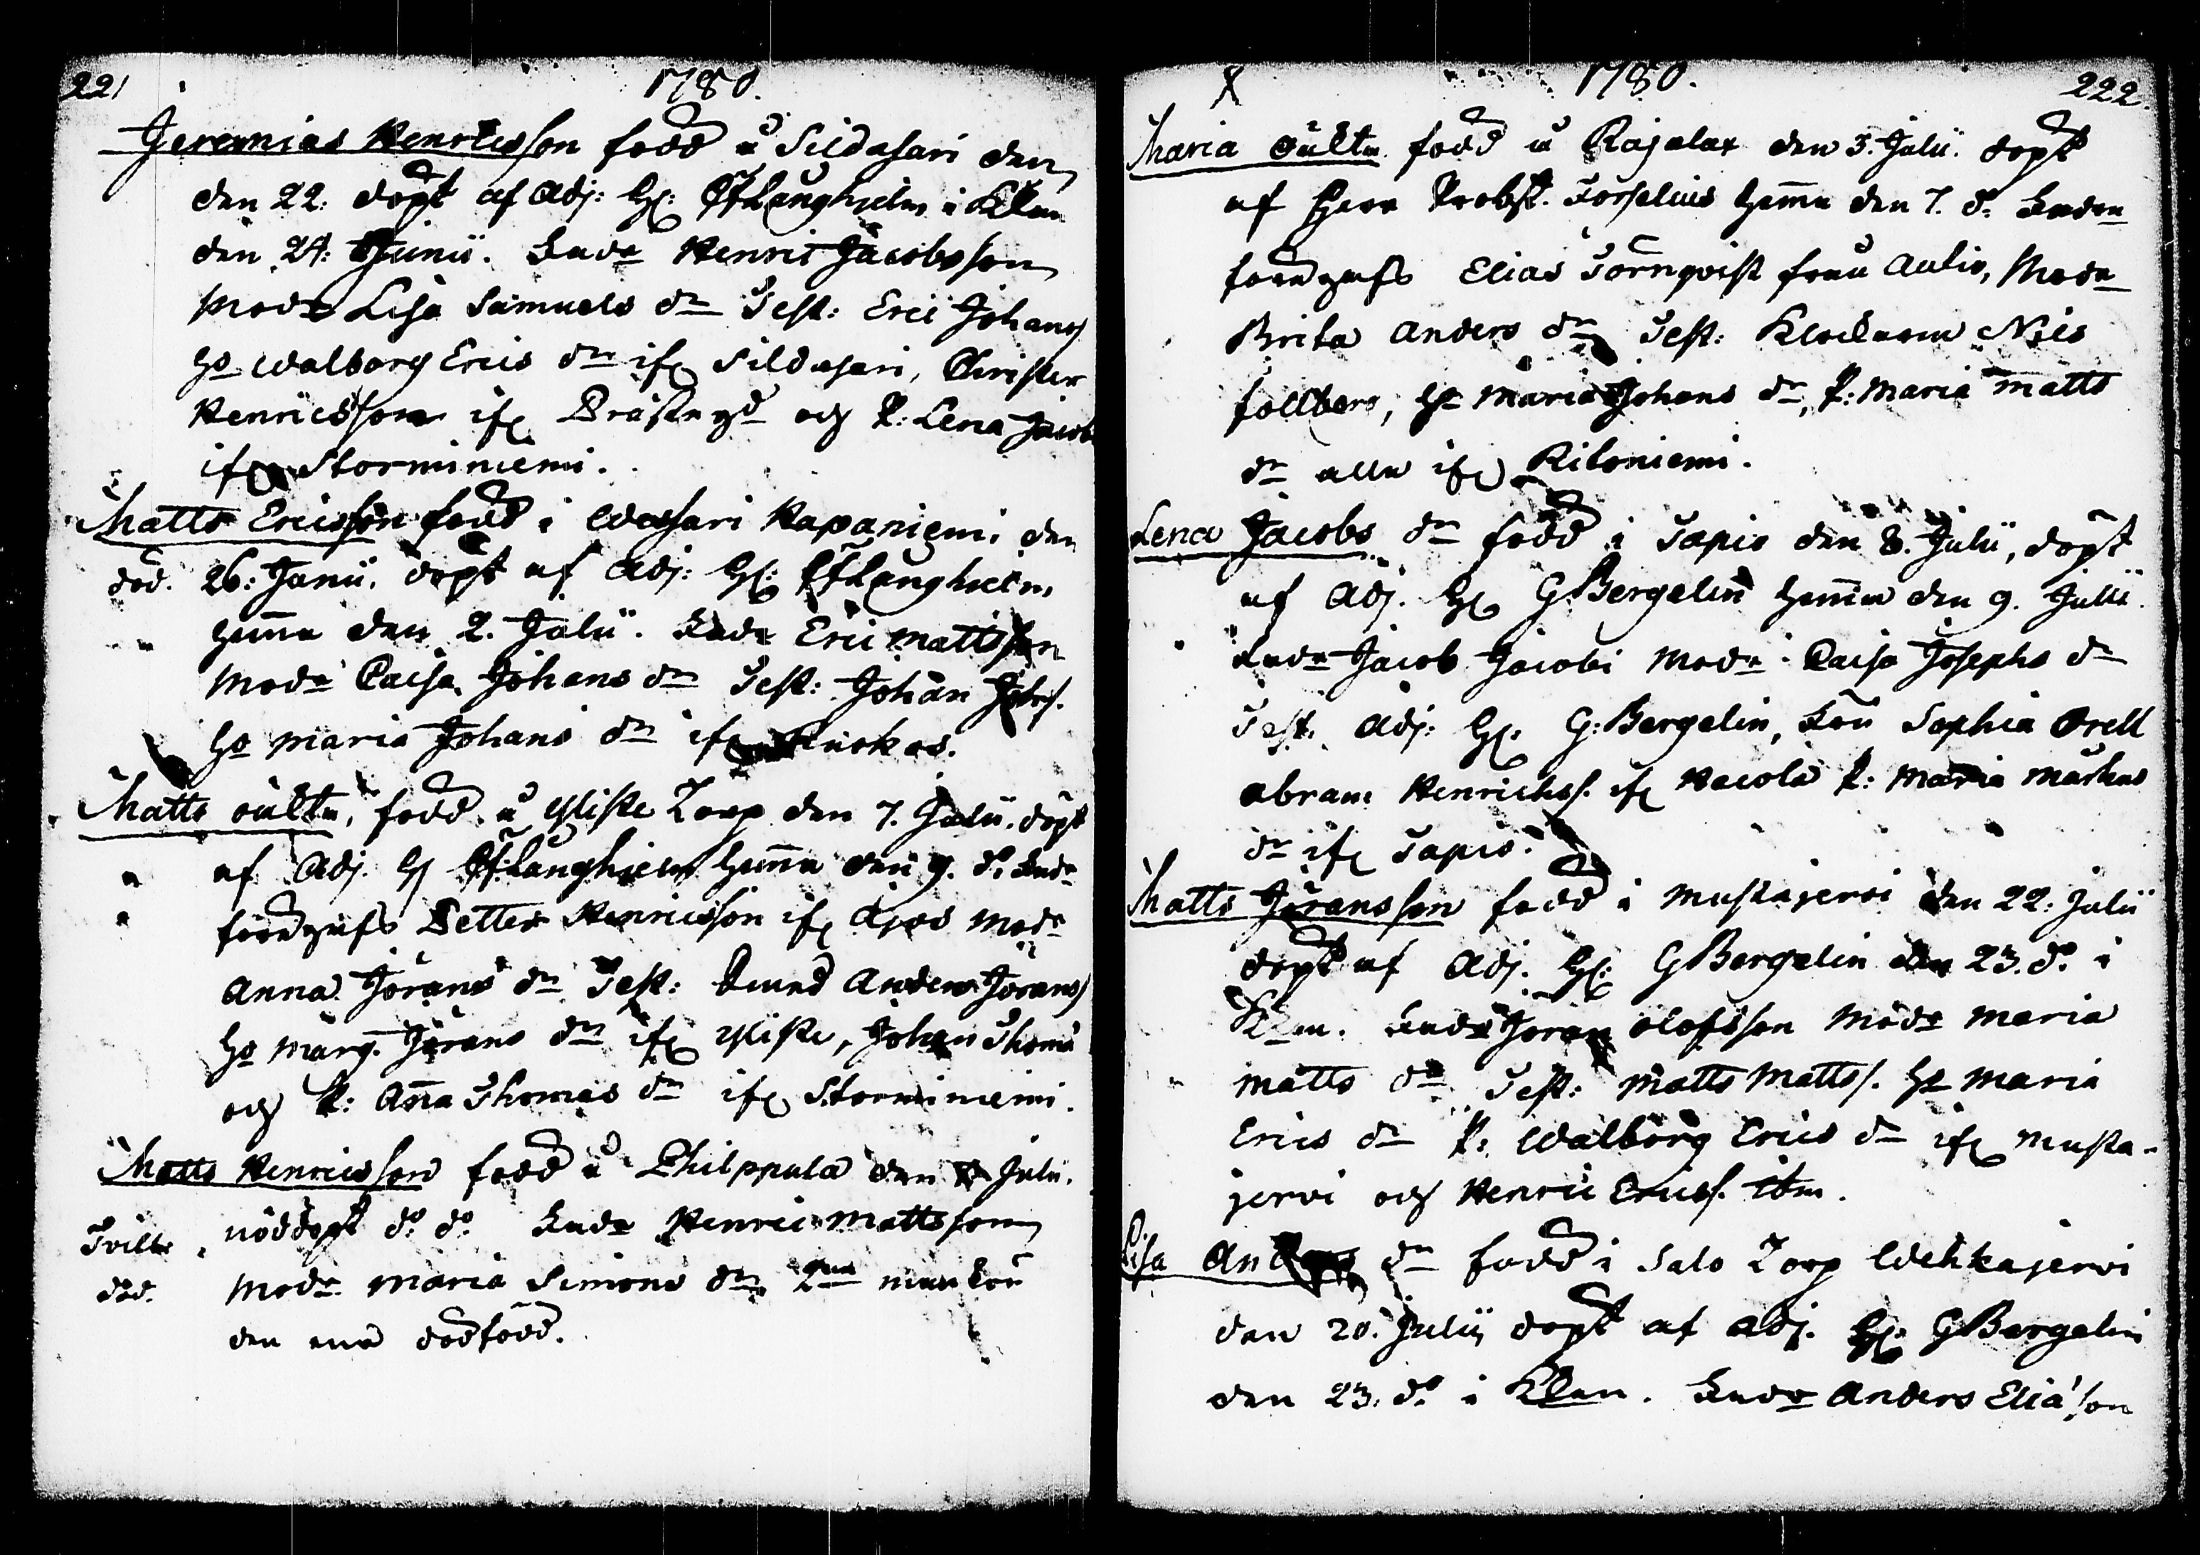 221
1780.
Jeremias Henricsson född å Sildasari den
den 22. döpt af Adj: H: Långhielm i Klan
den 24: Junii. Fadr Henric Jacobsson
Modr Lisa Samuels dr Test: Eric Johans
Ho Walborg Erics dr if Sildasari, Christer
Henricsson if Prästegd och P: Lena Jacobs
if Storminiemi.
Matts Ericsson född i Wessari Kapaniemi den
död. 26: Junii. döpt af Adj: H: Långhielm
hemma den 2. Julii. Fadr Eric Mattsson
Modr Caisa Johans dr Test: Johan Johs.
Ho Maria Johans dr if
Matts oäkta, född å Torp den 7. Julii. döpt
af Adj. H Långhielm hemma den 9. do. Fadr
föregifs Petter Henricsson if Ajos Modr
Anna Jörans dr Test: Anders Jörans
Ho Marg. Jörans dr if Johan Thoms
och P: Anna Thomas dr if Storminiemi.
Matts Henricsson född å Philppula den Julii.
Tvill. nöddöpt do do. Fadr Henric Mattsson
död. Modr Maria Simons dr 2ne mankön
den ena dödfödd.
1780.
222.
Maria oäkta född å Rajalax den 3. Julii. döpt
af Herr Probst. Forselius hemma den 7. do. Fadren
föregifs Elias Törnqvist från Aulio, Modr
Brita Anders dr Test: Klockaren Nils
Ho Maria Johans dr, P: Maria Matts
dr alla if Riloniemi.
Lena Jacobs dr född i Tapio den 8. Julii, döpt
af Adj. H G Bergelin hemma den 9. Julii.
Fadr Jacob Jacobi Modr Caisa Josephs dr
Test. Adj: H. G: Bergelin, Fru Sophia Orell
Abram Henrichss. if Hacola P: Maria Markus
dr if Tapio.
Matts Jöransson född i Mustajervi den 22. Julii
döpt af Adj. H: G Bergelin den 23. do. i
Klan. Fadr Jöran Olofsson Modr Maria
Matts dr Test: Matts Mattss. Ho Maria
Erics dr P: Walborg Erics dr if Musta-
jervi och Henric Ericss. itm.
Lisa Anders dr född i Salo Torp Wehkajervi
den 20. Julii döpt af Adj. H: G Bergelin
den 23. do. i Klan. Fadr Anders Eliasson